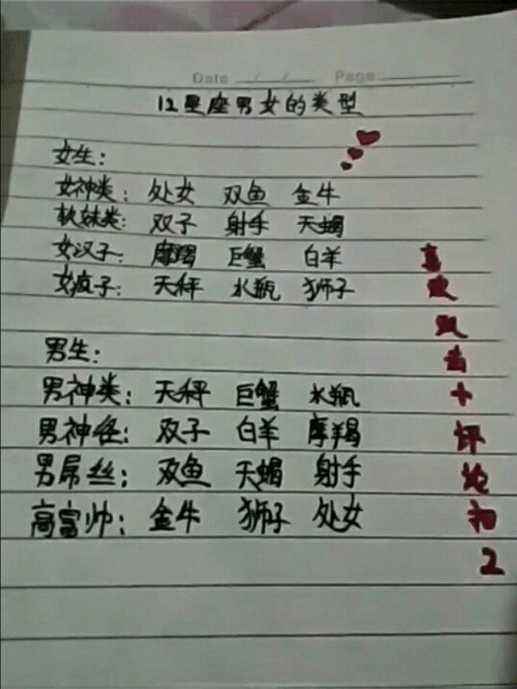 Date / / Page
12星座男女的类型
女生：
女神类：处女 双鱼 金牛
软妹类：双子 射手 天蝎
女汉子：摩羯 巨蟹 白羊
女疯子：天秤 水瓶 狮子
男生：
男神类：天秤 巨蟹 水瓶
男神经：双子 白羊 摩羯
男屌丝：双鱼 天蝎 射手
高富帅：金牛 狮子 处女
喜欢双击+评论扣2